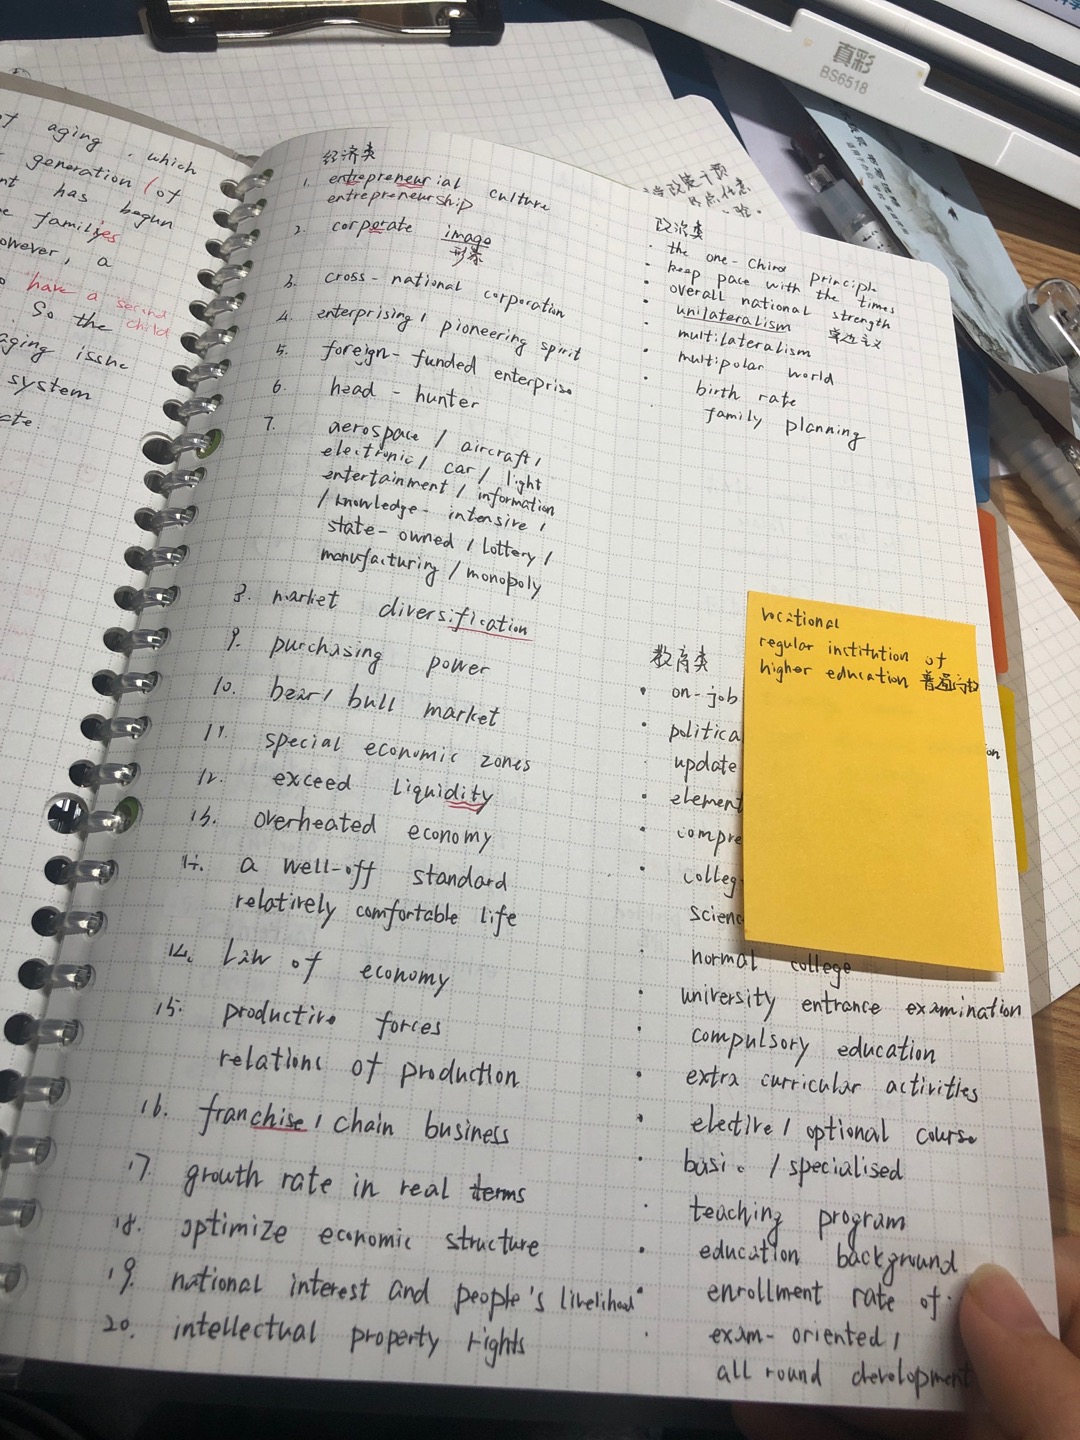 真彩
BS6518
of aging, which
generation (of
has begun
families
however, a
have a second
So the child
aging issue
system
经济类
1. entrepreneurial culture
entrepreneurship
2. corporate image
形象
3. cross-national corporation
4. enterprising / pioneering spirit
5. foreign-funded enterprise
6. head-hunter
7. aerospace / aircraft /
electronic / car / light
entertainment / information
/ knowledge-intensive /
state-owned / lottery /
manufacturing / monopoly
8. market diversification
9. purchasing power
10. bear / bull market
11. special economic zones
12. exceed liquidity
13. overheated economy
14. a well-off standard
relatively comfortable life
14. Law of economy
15. productive forces
relations of production
16. franchise / chain business
17. growth rate in real terms
18. optimize economic structure
19. national interest and people's livelihood
20. intellectual property rights
政治类
· the one-China principle
· keep pace with the times
· overall national strength
· unilateralism 单边主义
multilateralism
· multipolar world
· birth rate
· family planning
教育类
· on-job
· politica
update
· element
· compre
· colleg
scienc
· normal college
· university entrance examination
· compulsory education
· extra curricular activities
· elective / optional course
· basic / specialised
· teaching program
· education background
enrollment rate of
· exam-oriented /
all round development
vocational
regular institution of
higher education 普通高校